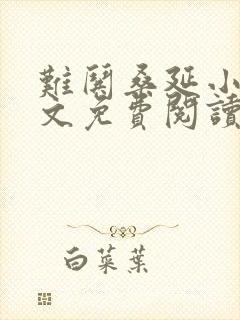 難鬨桑延小
文免費閱讀
白菜葉